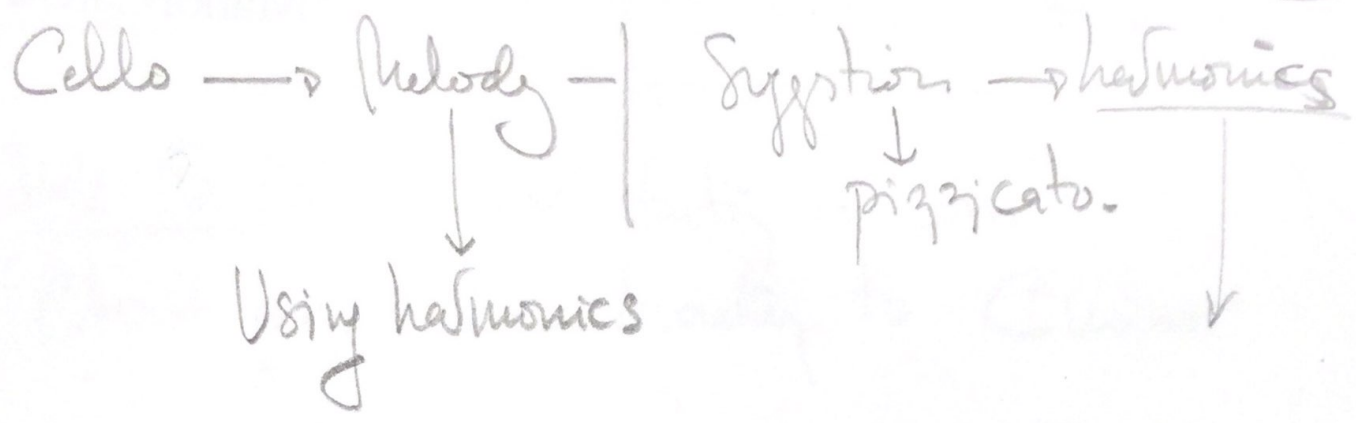 Cello → Melody — | Suggstion → harmonics
pizzicato.
Using harmonics